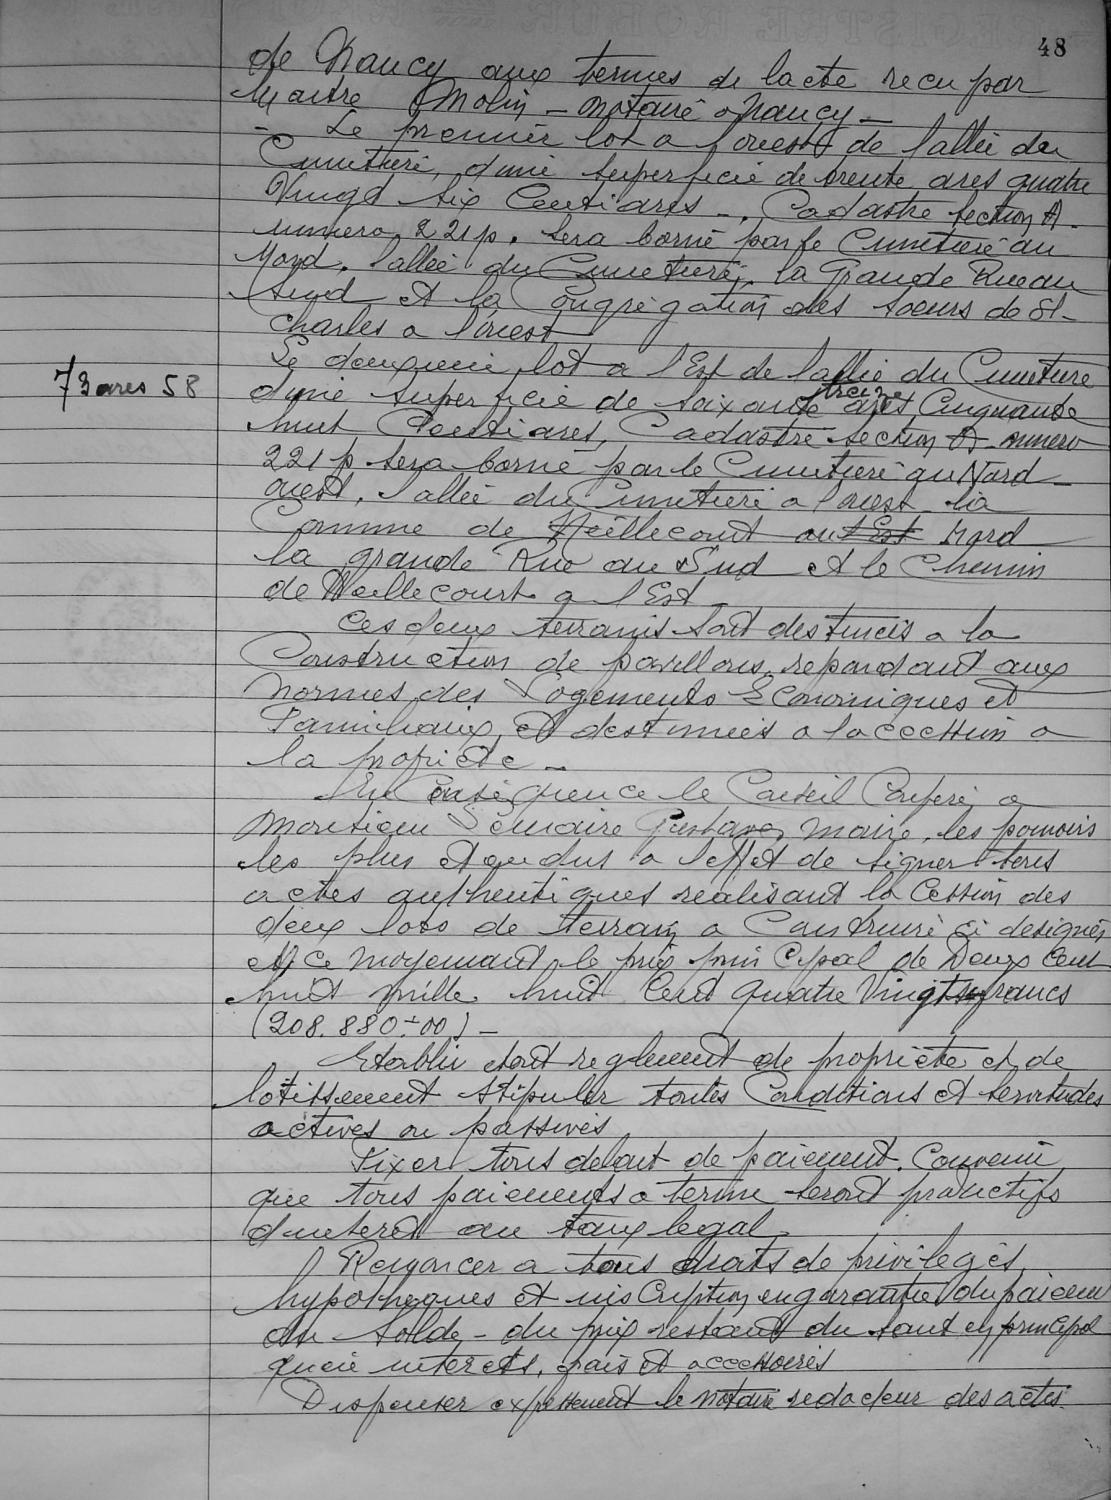 48
de Nancy aux termes de lacte recu par
Maitre Molin - notaire a Nancy -
- Le premier lot a l'ouest de l'allée du
Cimetiere, d'une superficie de trente ares quatre
Vingt six Centiares -. Cadastre section A.
numero 221p. sera borné par le Cimetiere au
Nord. l'allée du Cimetiere, la Grande Rue au
Sud et la Congrégation des soeurs de St-
Charles a l'ouest
Le deuxieme lot a l'Est de l'allée du Cimetiere
73 ares 58
d'une superficie de soixante treize ares Cinquante
huit Centiares, Cadastre section A numero
221 p sera borné par le Cimetiere au Nord -
ouest, l'allée du Cimetiere a l'ouest la
Commune de Heillecourt au Est Nord
la grande Rue au Sud et le Chemin
de Heillecourt a l'Est -
Ces deux terrains sont destinés a la
Construction de pavillons repondant aux
normes des Logements Economiques et
Familiaux, et destinés a laccession a
la propriete -
En Conséquence le Conseil Confere a
Monsieur Lemaire Gustave, maire, les pouvoirs
les plus etendus a l'effet de signer tous
actes authentiques realisant la Cession des
deux lots de terrain a Construire ci designés
et Ce moyennant le prix principal de Deux Cent
huit mille huit Cent quatre Vingt francs
(208.880 00) -
Etablir tout reglement de propriete et de
lotissement stipuler toutes Conditions et servitudes
actives ou passives
Fixer tous delais de paiement. Convenir
que tous paiements a terme seront productifs
d'interet au taux legal.
Renoncer a tous droits de privileges,
hypotheques et inscription en garantie du paiement
du solde - du prix restant du tant en principal
qu'en interets, frais et accessoires
Dispenser expressement le notaire redacteur des actes